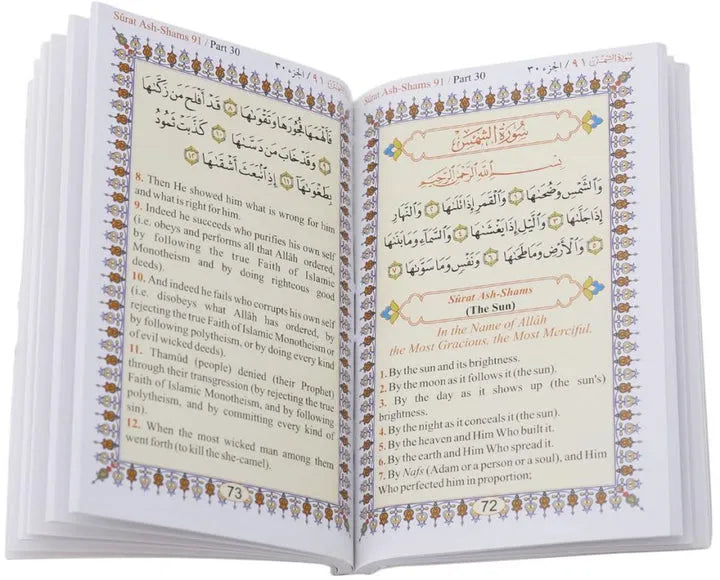 Sûrat Ash-Shams 91 / Part 30 سورة الشمس ٩١ / الجزء ٣٠
سُورَةُ الشَّمْسِ
بِسْمِ ٱللَّهِ ٱلرَّحْمَٰنِ ٱلرَّحِيمِ
وَٱلشَّمْسِ وَضُحَىٰهَا ١ وَٱلْقَمَرِ إِذَا تَلَىٰهَا ٢ وَٱلنَّهَارِ
إِذَا جَلَّىٰهَا ٣ وَٱلَّيْلِ إِذَا يَغْشَىٰهَا ٤ وَٱلسَّمَآءِ وَمَا بَنَىٰهَا
٥ وَٱلْأَرْضِ وَمَا طَحَىٰهَا ٦ وَنَفْسٍ وَمَا سَوَّىٰهَا ٧
Sûrat Ash-Shams
(The Sun)
In the Name of Allâh
the Most Gracious, the Most Merciful.
1. By the sun and its brightness.
2. By the moon as it follows it (the sun).
3. By the day as it shows up (the sun's)
brightness.
4. By the night as it conceals it (the sun).
5. By the heaven and Him Who built it.
6. By the earth and Him Who spread it.
7. By Nafs (Adam or a person or a soul), and Him
Who perfected him in proportion;
72
Sûrat Ash-Shams 91 / Part 30 سورة الشمس ٩١ / الجزء ٣٠
فَأَلْهَمَهَا فُجُورَهَا وَتَقْوَىٰهَا ٨ قَدْ أَفْلَحَ مَن زَكَّىٰهَا
٩ وَقَدْ خَابَ مَن دَسَّىٰهَا ١٠ كَذَّبَتْ ثَمُودُ
بِطَغْوَىٰهَآ ١١ إِذِ ٱنۢبَعَثَ أَشْقَىٰهَا ١٢
8. Then He showed him what is wrong for him
and what is right for him.
9. Indeed he succeeds who purifies his own self
(i.e. obeys and performs all that Allâh ordered,
by following the true Faith of Islamic
Monotheism and by doing righteous good
deeds).
10. And indeed he fails who corrupts his own self
(i.e. disobeys what Allâh has ordered, by
rejecting the true Faith of Islamic Monotheism or
by following polytheism, or by doing every kind
of evil wicked deeds).
11. Thamûd (people) denied (their Prophet)
through their transgression (by rejecting the true
Faith of Islamic Monotheism, and by following
polytheism, and by committing every kind of
sin).
12. When the most wicked man among them
went forth (to kill the she-camel).
73